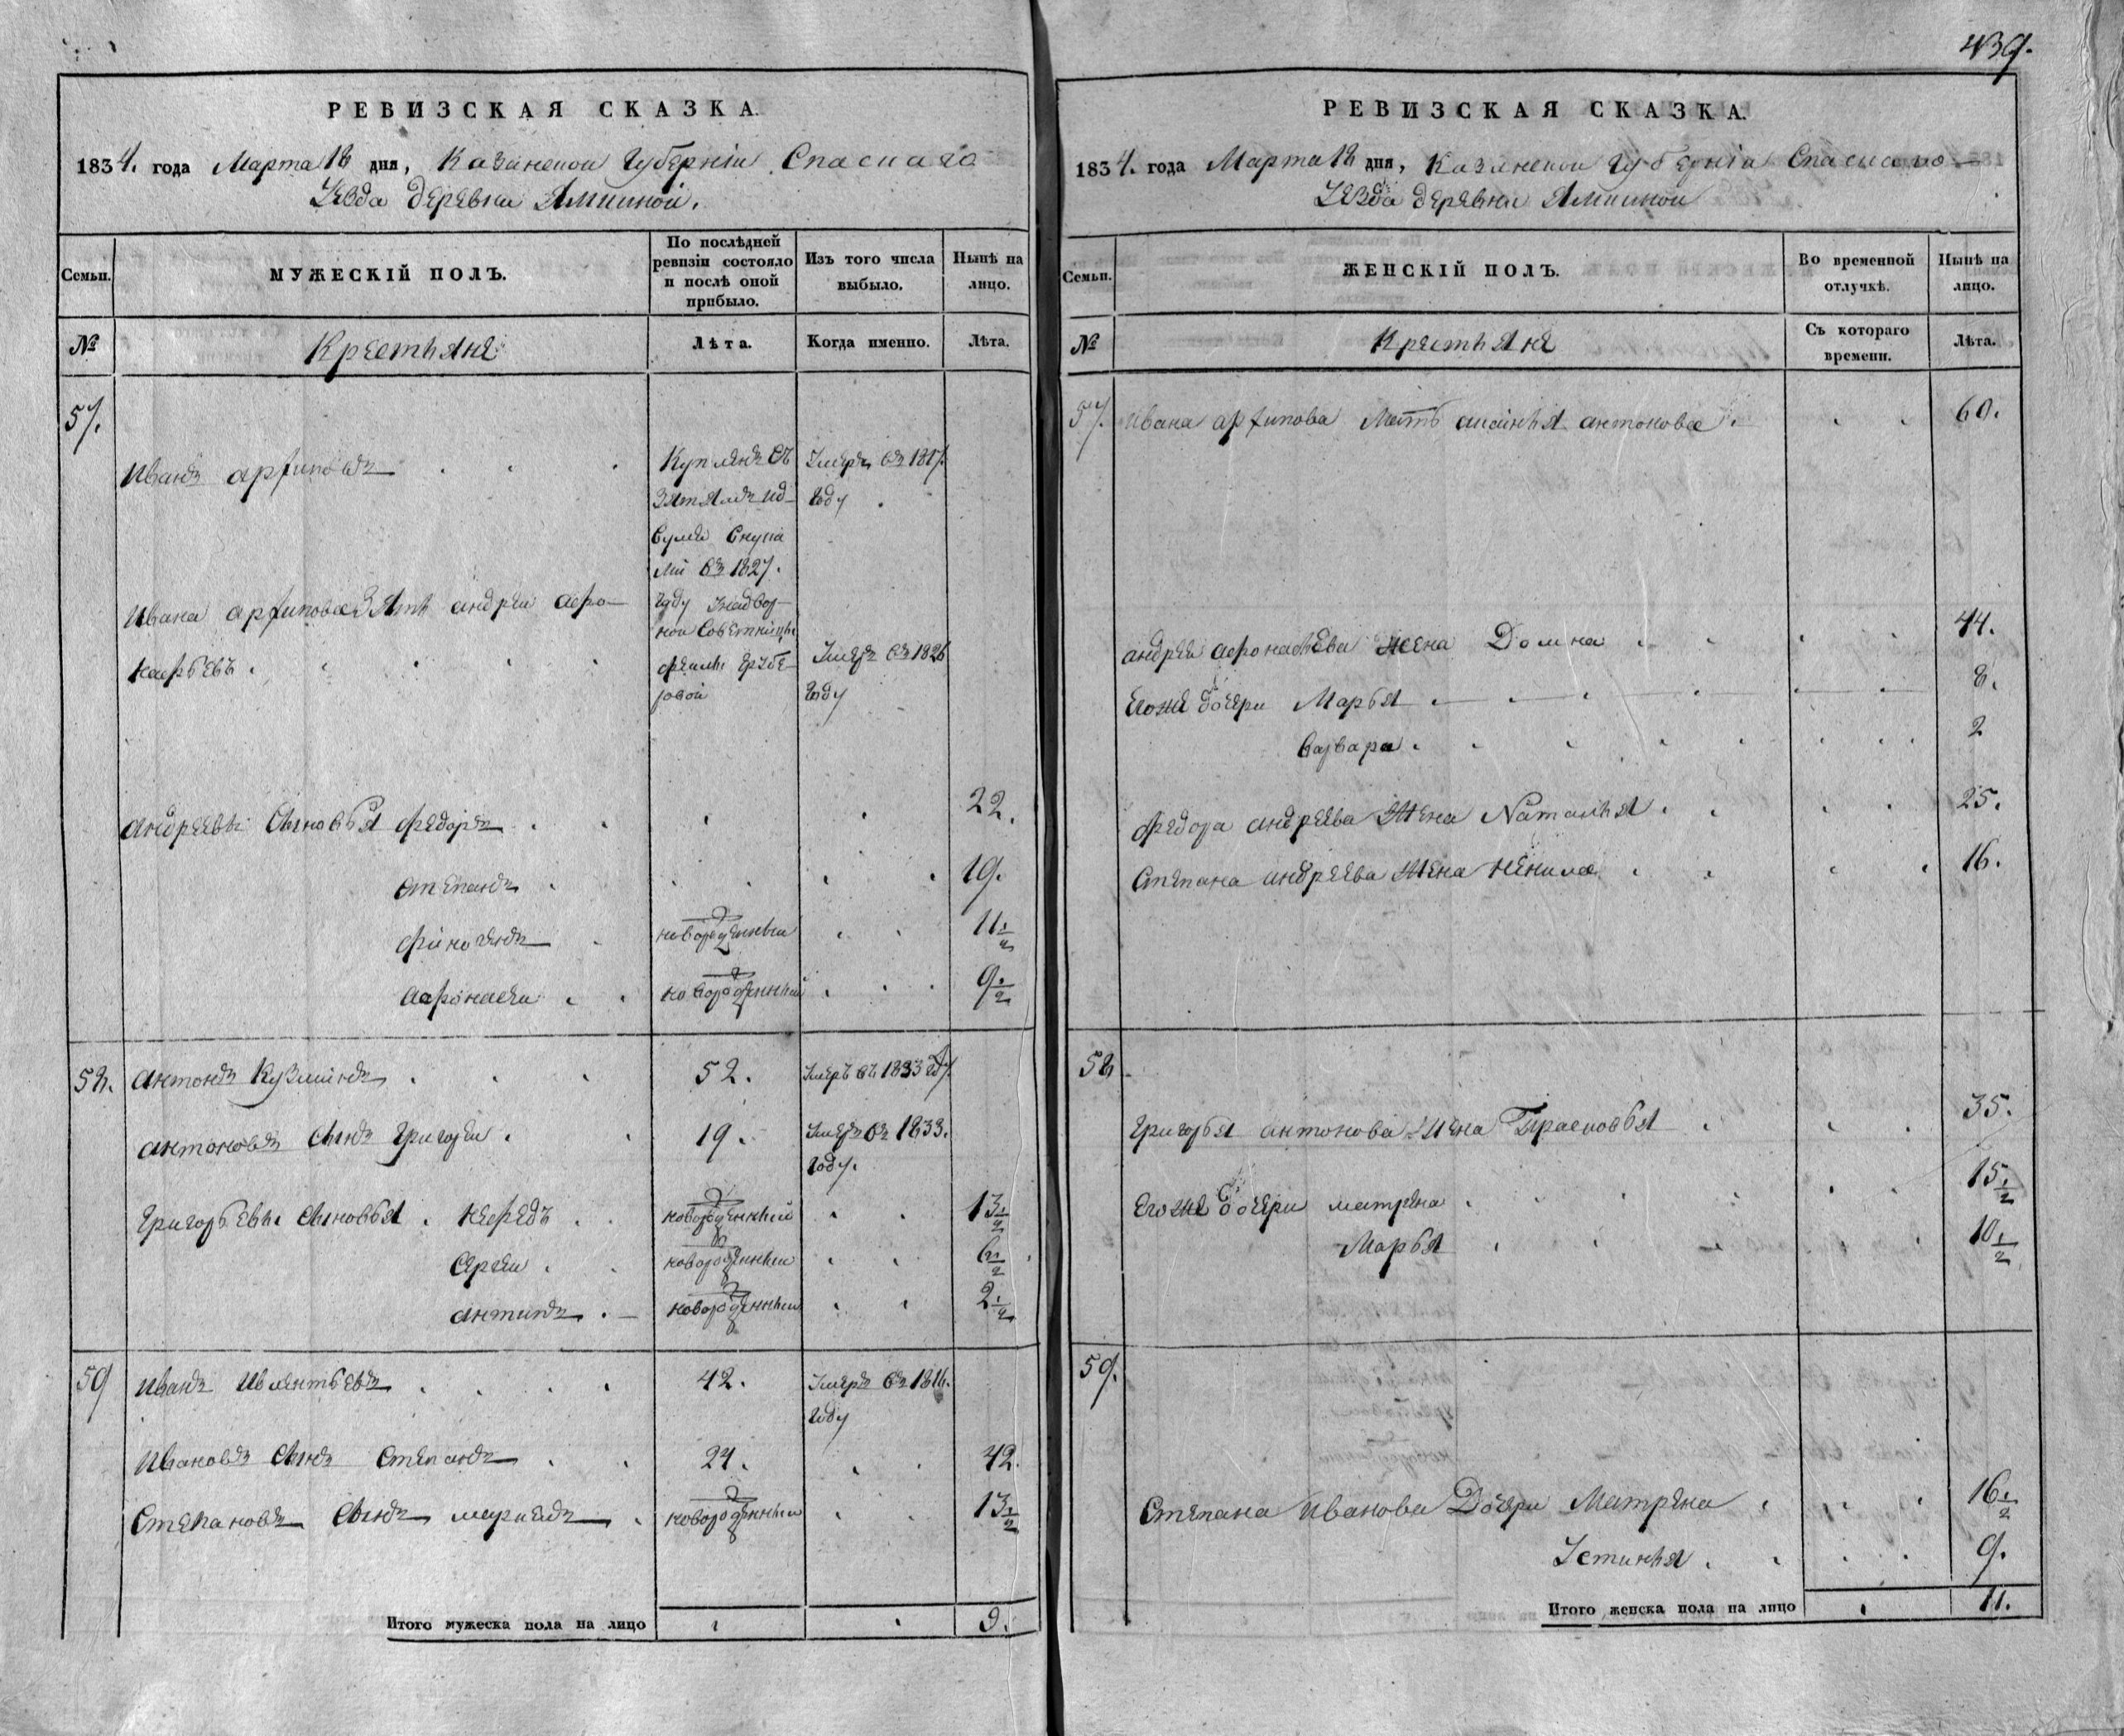 439.
РЕВИЗСКАЯ СКАЗКА.
1834. года Марта 18 дня, Казанской Губернии Спаскаго
Уезда деревни Ямкиной.
Семьи.
МУЖЕСКІЙ ПОЛЪ.
По послѣдней ревизіи состояло и послѣ оной прибыло.
Изъ того числа выбыло.
Нынѣ на лицо.
№
Крестьяне
Лѣта.
Когда именно.
Лѣта.
57.
Иванъ архиповъ
Купленъ съ
зятямъ
Умеръ въ 1817.
году
въ 1827.
году
Ивана архипова зять андреи афо-
насьевъ
Умеръ въ 1826
году
андреевы сыновья федоръ 22.
степанъ 19.
финогенъ новорожденныи 11 1/2
афонасеи новорожденный 9 1/2
58. антонъ Кузминъ 52. Умеръ въ 1833 году.
антоновъ сынъ григореи 19. Умеръ въ 1833.
году.
григорьевы сыновья нефедъ новорожденный 13 1/2
Сергеи новорожденныи 6 1/2
антипъ новорожденныи 2 1/2
59 Иванъ Ивлентьевъ 42. Умеръ въ 1816.
году
Ивановъ сынъ Степанъ 24. 42.
Степановъ сынъ новорожденныи 13 1/2
Итого мужеска пола на лицо 9.
РЕВИЗСКАЯ СКАЗКА.
1834. года Марта 18 дня, Казанской Губерніи Спаскаго
Уезда деревни Ямкиной
Семьи.
ЖЕНСКІЙ ПОЛЪ.
Во временной отлучкѣ.
Нынѣ на лицо.
№
Крестьяне
Съ котораго времени.
Лѣта.
57. Ивана архипова Мать антонова 60.
андрея афонасьева жена Домна 44.
Егоже дочери Марья 8.
Варвара 2
федора андреева жена Наталья 25.
Степана андреева жена Ненила 16.
58
григорья антонова жена Прасковья 35.
Егоже дочери матрена 15 1/2
Марья 10 1/2
59.
Степана Иванова Дочери Матрена 16 1/2
Устинья 9.
Итого женска пола на лицо 11.